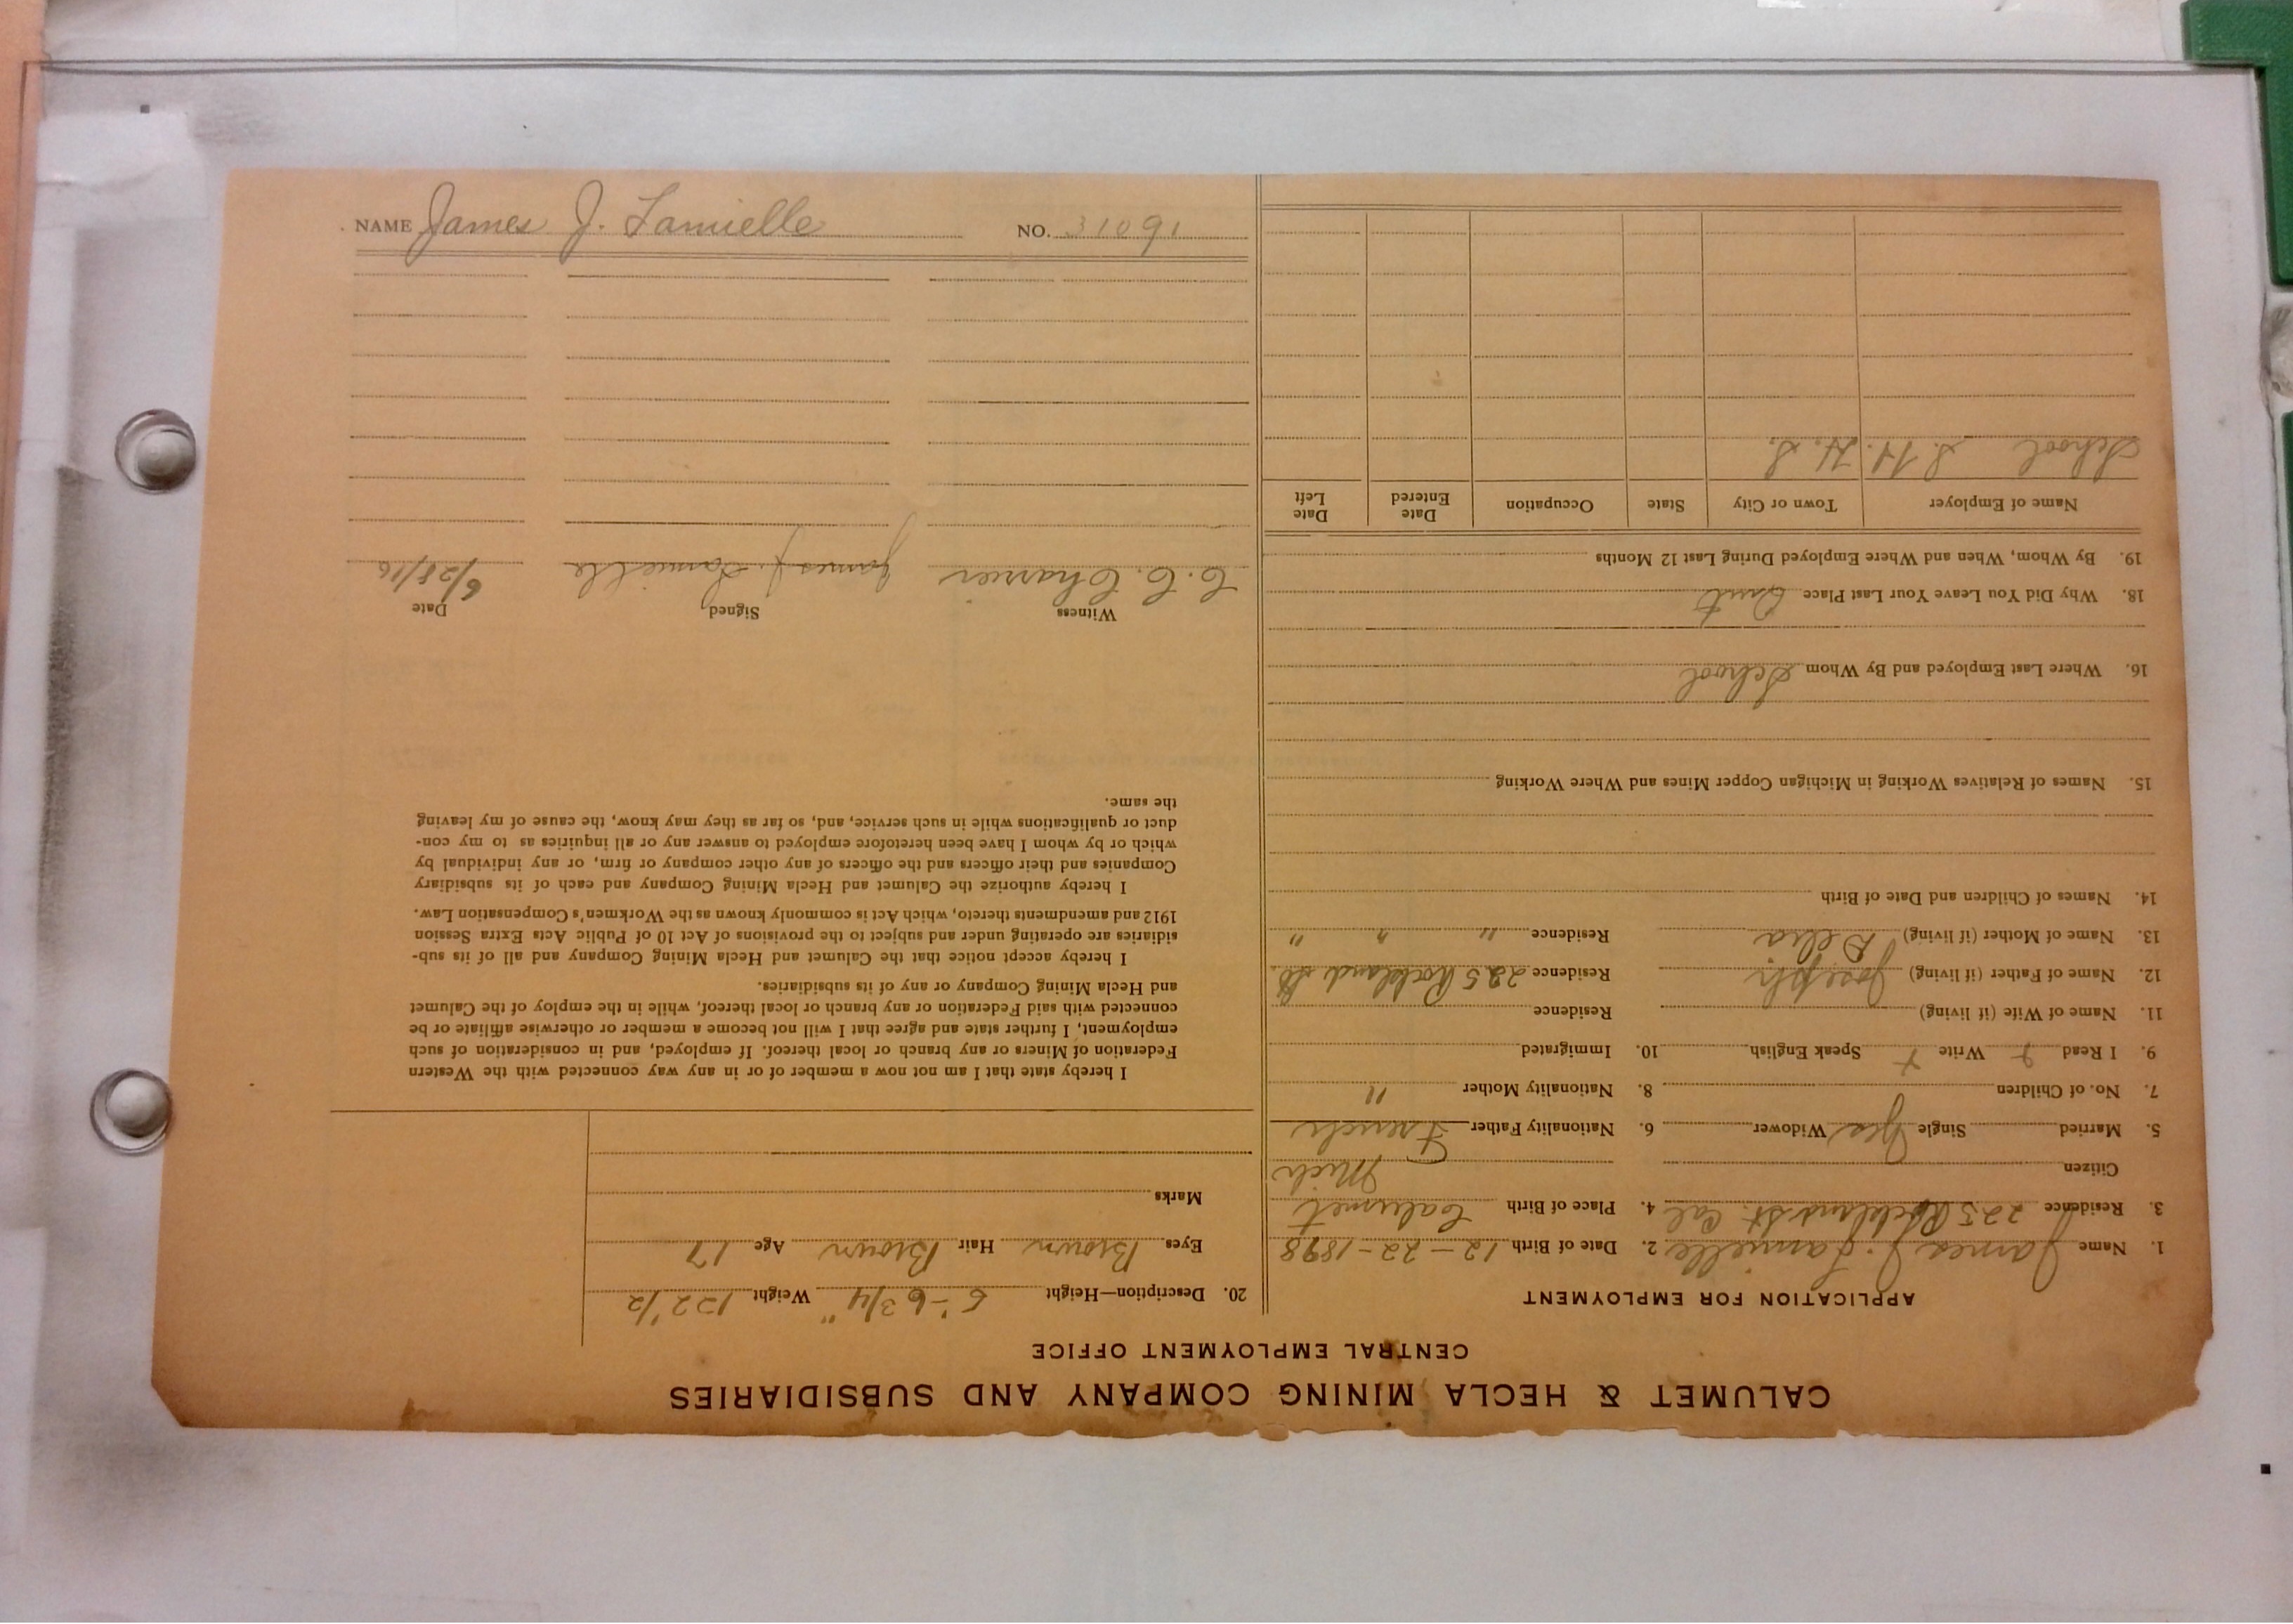 CALUMET & HECLA MINING COMPANY AND SUBSIDIARIES
CENTRAL EMPLOYMENT OFFICE
APPLICATION FOR EMPLOYMENT
1. Name James J. Lamielle 2. Date of Birth 12-22-1898
3. Residence 225 Rockland St. Cal 4. Place of Birth Calumet
Citizen Mich
5. Married Single Yes Widower 6. Nationality Father French
7. No. of Children 8. Nationality Mother "
9. I Read + Write + Speak English 10. Immigrated
11. Name of Wife (if living) Residence
12. Name of Father (if living) Joseph Residence 225 Rockland St.
13. Name of Mother (if living) Delia Residence " " "
14. Names of Children and Date of Birth
15. Names of Relatives Working in Michigan Copper Mines and Where Working
16. Where Last Employed and By Whom School
18. Why Did You Leave Your Last Place
19. By Whom, When and Where Employed During Last 12 Months
Name of Employer Town or City State Occupation Date Entered Date Left
School S. H. H. S.
20. Description—Height 5'-6 3/4" Weight 122 1/2
Eyes Brown Hair Brown Age 17
Marks
I hereby state that I am not now a member of or in any way connected with the Western
Federation of Miners or any branch or local thereof. If employed, and in consideration of such
employment, I further state and agree that I will not become a member or otherwise affiliate or be
connected with said Federation or any branch or local thereof, while in the employ of the Calumet
and Hecla Mining Company or any of its subsidiaries.
I hereby accept notice that the Calumet and Hecla Mining Company and all of its sub-
sidiaries are operating under and subject to the provisions of Act 10 of Public Acts Extra Session
1912 and amendments thereto, which Act is commonly known as the Workmen's Compensation Law.
I hereby authorize the Calumet and Hecla Mining Company and each of its subsidiary
Companies and their officers and the officers of any other company or firm, or any individual by
which or by whom I have been heretofore employed to answer any or all inquiries as to my con-
duct or qualifications while in such service, and, so far as they may know, the cause of my leaving
the same.
Witness Signed Date
C. C. Charrier James J. Lamielle 6/28/16
NAME James J. Lamielle NO. 31091